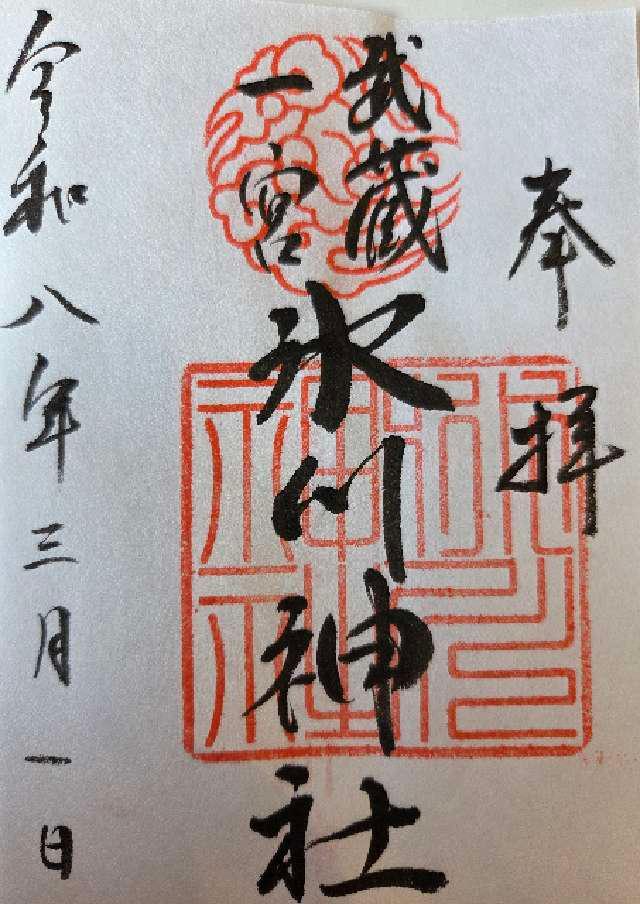 奉拝
武蔵
一宮
氷川神社
令和八年三月一日